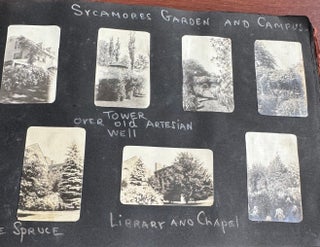 SYCAMORES GARDEN AND CAMPUS
TOWER
OVER OLD ARTESIAN
WELL
SPRUCE
LIBRARY AND CHAPEL